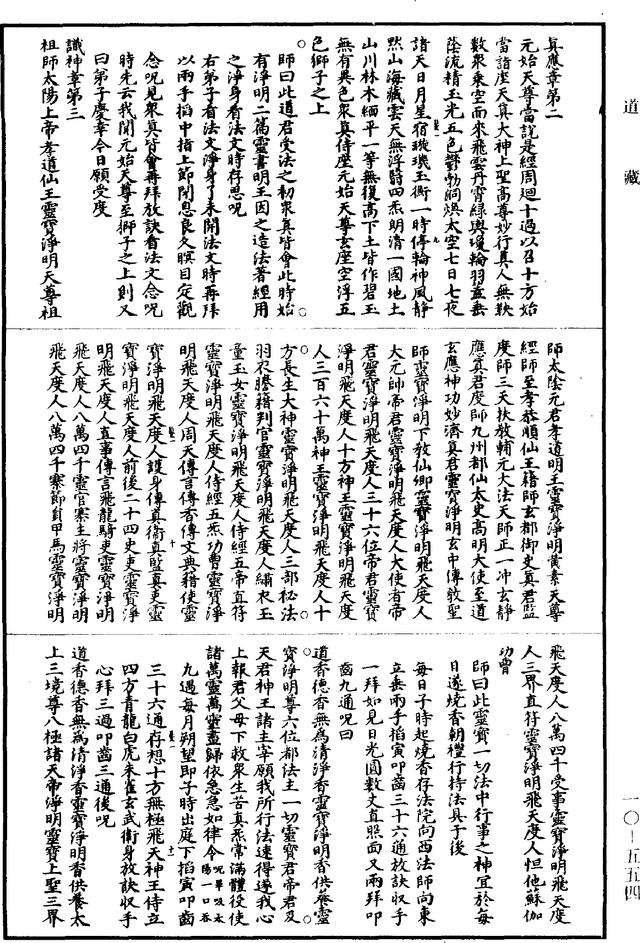 道藏
眞應章第二
元始天尊當說是經周廻十過以召十方始
當諸座天真大神上聖高尊妙行真人無鞅
數衆乘空而來飛雲丹霄緑輿瓊輪羽蓋垂
蔭流精玉光五色鬱勃洞煥太空七日七夜
諸天日月星宿璇璣玉衡一時停輪神風静
默山海藏雲天無浮翳四炁朗清一國地土
山川林木緬平一等無復高下土皆作碧玉
無有異色衆真侍座元始天尊玄座空浮五
色獅子之上
師曰此道君受法之初衆真皆會此時始
有淨明二篇靈書明王因之造法著經用
之淨身看法文時存思呪
右弟子看法文淨身了未開法文時再拜
以兩手掐中指上節閉息良久瞑目定觀
念呪見衆真皆會再拜放訣看法文念呪
時先云我聞元始天尊至獅子之上則又
曰弟子慶幸今日願受度
識神章第三
祖師太陽上帝孝道仙王靈寶淨明天尊祖
師太陰元君孝道明王靈寶淨明黄素天尊
經師至孝恭順仙王籍師玄都御史真君監
度師三天扶教輔元大法天師正一冲玄静
應真君度師九州都仙太史高明大使至道
玄應神功妙濟真君靈寶淨明玄中傳教聖
師靈寶淨明下教仙卿靈寶淨明飛天度人
大元帥帝君靈寶淨明飛天度人大使者帝
君靈寶淨明飛天度人三十六位帝君靈寶
淨明飛天度人十方神王靈寶淨明飛天度
人三百六十萬神王靈寶淨明飛天度人十
方長生大神靈寶淨明飛天度人三部柲法
羽衣謄籍判官靈寶淨明飛天度人繡衣玉
童玉女靈寶淨明飛天度人侍經五帝直符
靈寶淨明飛天度人侍經五炁功曹靈寶淨
明飛天度人周天傳言傳香傳文典籍使靈
寶淨明飛天度人護身傳真衛真監真吏靈
寶淨明飛天度人前後二十四史吏靈寶淨
明飛天度人直事傳言飛龍騎吏靈寶淨明
飛天度人八萬四千靈官寨主將靈寶淨明
飛天度人八萬四千寨節級甲馬靈寶淨明
飛天度人八萬四千受事靈寶淨明飛天度
人三界直符靈寶淨明飛天度人怛他蘇伽
功曹
師曰此靈寶一切法中行事之神宜於每
日遂燒香朝禮行持法具于後
每日子時起燒香存法院向西法師向東
立垂兩手掐寅叩齒三十六通放訣收手
一拜如見日光圓數丈直照面又兩拜叩
齒九通呪曰
道香德香無爲清淨香靈寶淨明香供養靈
寶淨明尊六位都法主一切靈寶君帝君及
天君神王諸主宰願我所行法速得遂我心
上報君父母下救衆生苦真炁常滿體役使
諸萬靈萬靈盡歸依急急如律令呪畢吸太陽一口吞
九遇每月朔望即子時出庭下掐寅叩齒
三十六通存想十方無極飛天神王侍立
四方青龍白虎朱雀玄武衛身放訣收手
心拜三過叩齒三通後呪
道香德香無爲清淨香靈寶淨明香供養太
上三境尊八極諸天帝淨明靈寶上聖三界
一〇-五五四